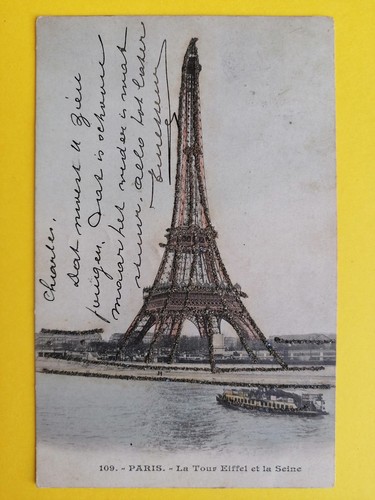 Charles.
Dat moest U zien
juigen, dat is schoone
maar het weder is mat
nieuw. Allo tot later
109. - PARIS. - La Tour Eiffel et la Seine